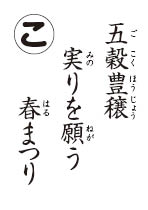 こ
五穀豊穣
実りを願う
春まつり
ご こく ほう じょう
みの ねが
はる